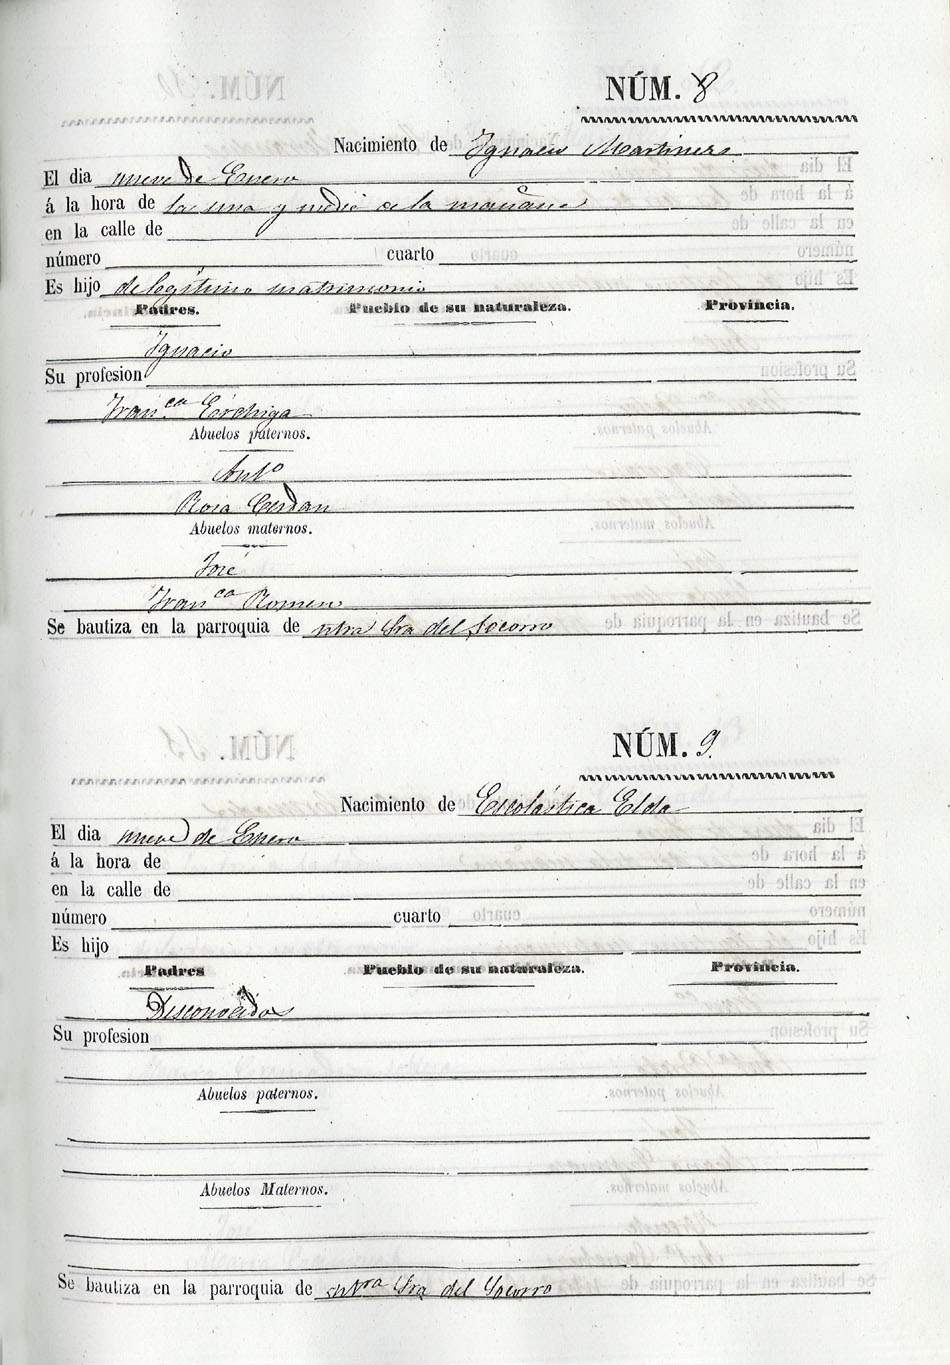 NÚM. 8
Nacimiento de Ignacio Martinez
El dia nueve de Enero
á la hora de la una y media de la mañana
en la calle de
número cuarto
Es hijo de legítimo matrimonio
Padres. Pueblo de su naturaleza. Provincia.
Ignacio
Su profesion
Fran.ca
Abuelos paternos.
Ant.o
Rosa Cerdan
Abuelos maternos.
José
Fran ca Romero
Se bautiza en la parroquia de ntra Sra del Socorro
NÚM. 9.
Nacimiento de Escolástica Elda
El dia nueve de Enero
á la hora de
en la calle de
número cuarto
Es hijo
Padres Pueblo de su naturaleza. Provincia.
Desconocidos
Su profesion
Abuelos paternos.
Abuelos Maternos.
Se bautiza en la parroquia de ntra Sra del Socorro